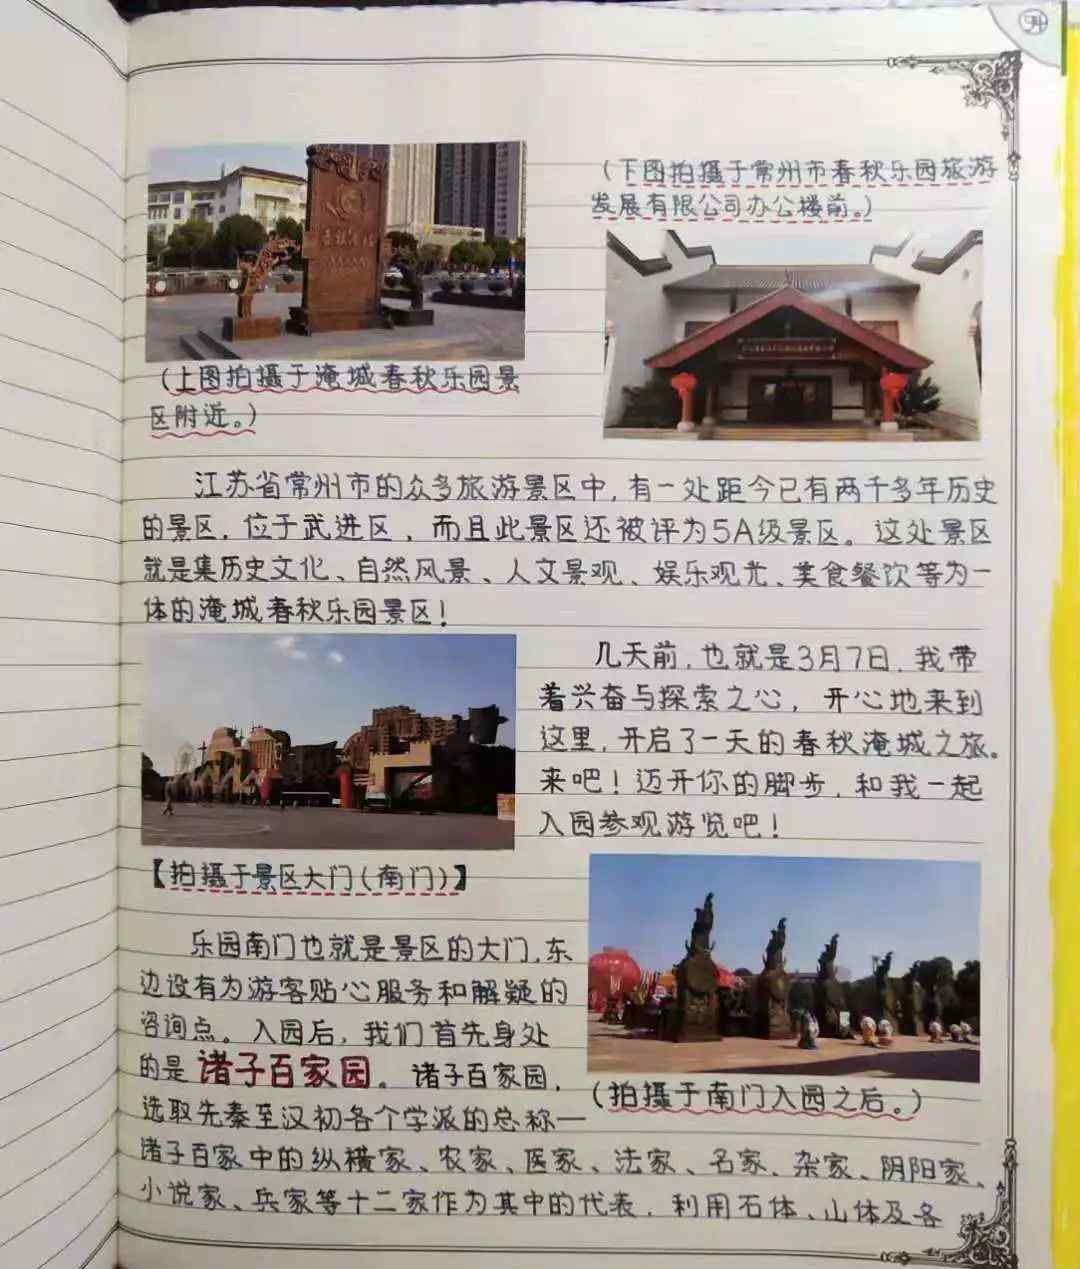 (上图拍摄于淹城春秋乐园景
区附近。)
(下图拍摄于常州市春秋乐园旅游
发展有限公司办公楼前。)
江苏省常州市的众多旅游景区中,有一处距今已有两千多年历史
的景区,位于武进区,而且此景区还被评为5A级景区。这处景区
就是集历史文化、自然风景、人文景观、娱乐观光、美食餐饮等为一
体的淹城春秋乐园景区!
几天前,也就是3月7日,我带
着兴奋与探索之心,开心地来到
这里,开启了一天的春秋淹城之旅。
来吧!迈开你的脚步,和我一起
入园参观游览吧!
【拍摄于景区大门(南门)】
乐园南门也就是景区的大门,东
边设有为游客贴心服务和解疑的
咨询点。入园后,我们首先身处
的是诸子百家园。诸子百家园,
选取先秦至汉初各个学派的总称一
(拍摄于南门入园之后。)
诸子百家中的纵横家、农家、医家、法家、名家、杂家、阴阳家、
小说家、兵家等十二家作为其中的代表,利用石体、山体及各